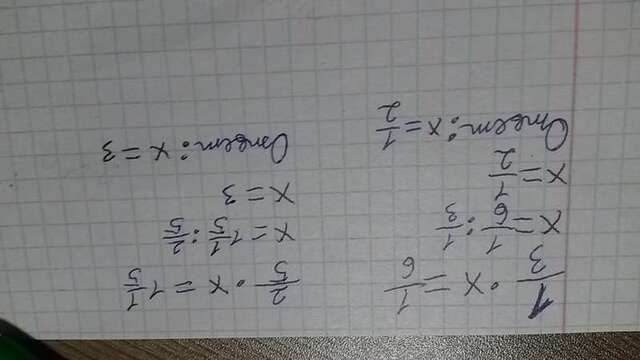 1/3 · x = 1/6
x = 1/6 : 1/3
x = 1/2
Ответ: x = 1/2
2/5 · x = 1 1/5
x = 1 1/5 : 2/5
x = 3
Ответ: x = 3